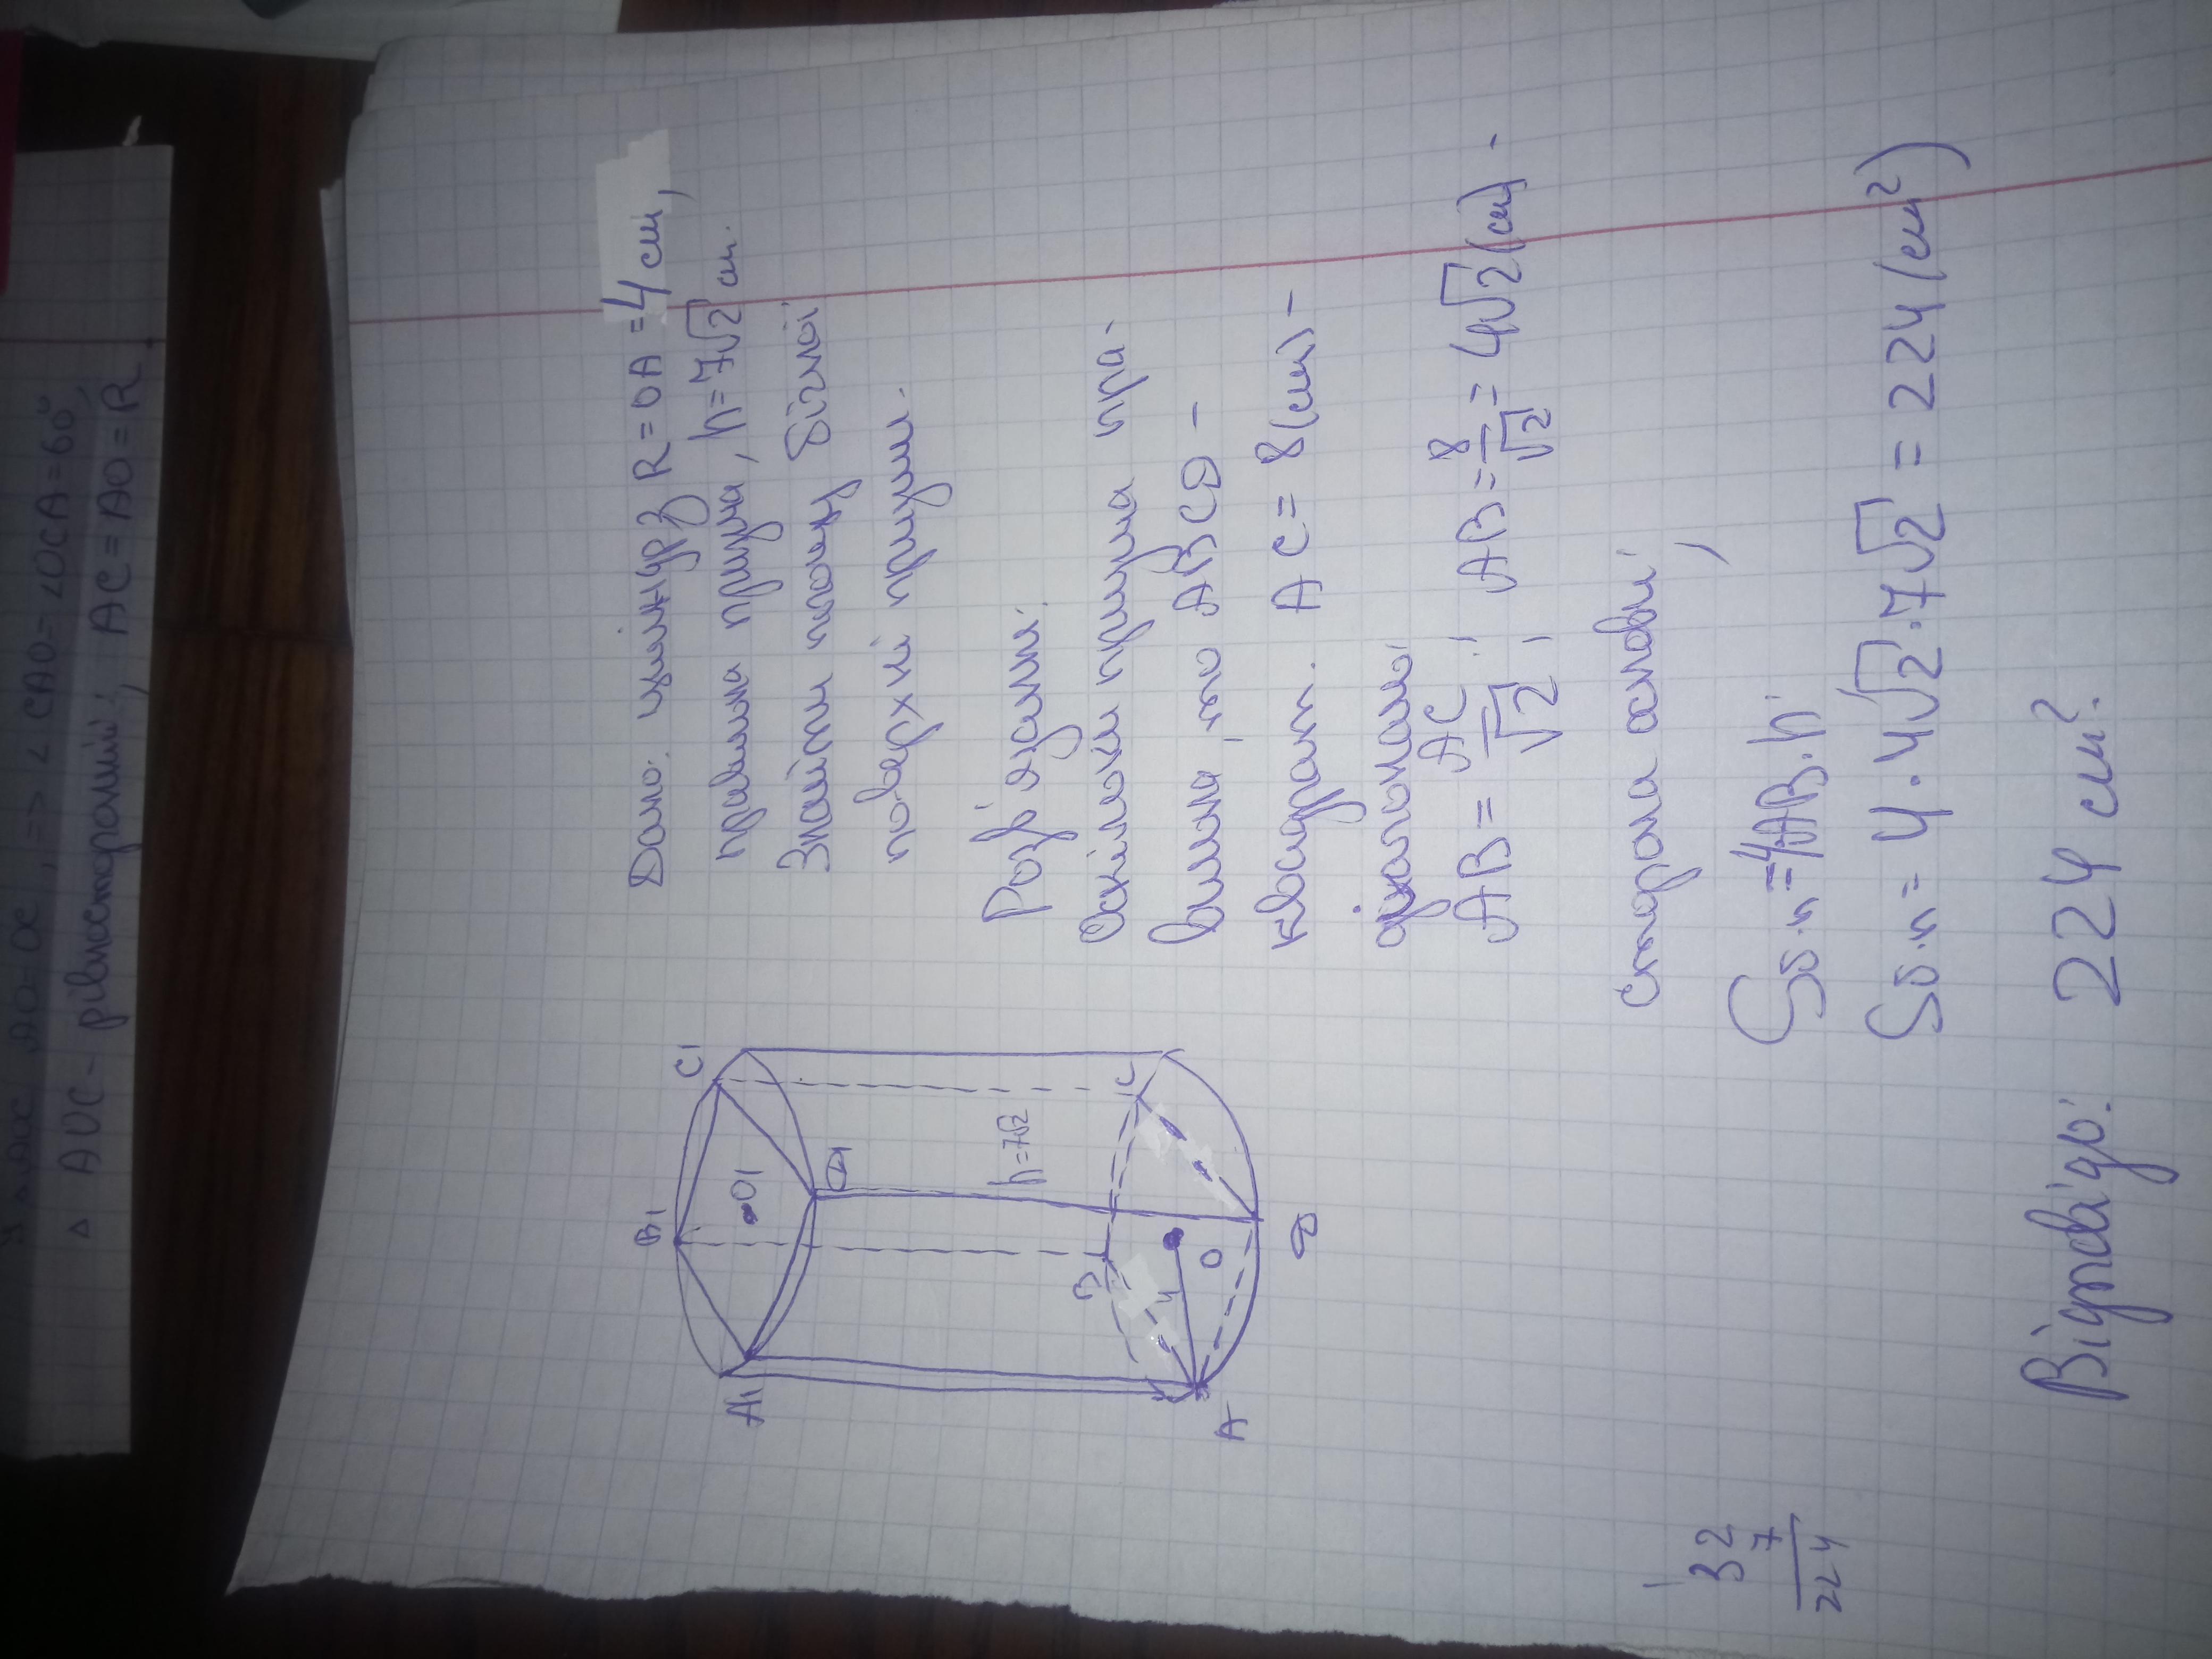 △AOC, AO=OC, => ∠CAO=∠OCA=60°,
△ AOC - рівносторонній; AC=AO=R
Дано: циліндр з R=OA=4 см,
правильна призма, h=7√2 см.
Знайти площу бічної
поверхні призми.
Розв'язання:
Оскільки призма пра-
вильна, то ABCD -
квадрат. AC=8(см)-
діагональ
AB=AC/√2; AB=8/√2=4√2(см)-
сторона основи,
Sб.п=4AB·h
Sб.п=4·4√2·7√2=224(см²)
Відповідь: 224 см².
B1
C1
A1
O1
D1
h=7√2
B
C
4
O
A
D
1
32
7
224